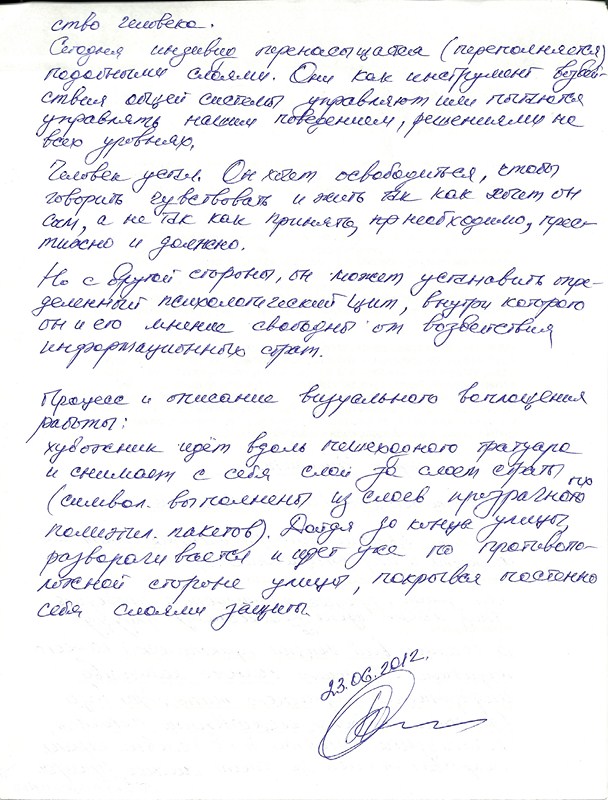 ство человека.
Сегодня индивид перенасыщается (переполняется)
подобными слоями. Они как инструмент воздей-
ствия общей системы управляют или пытаются
управлять нашим поведением, решениями на
всех уровнях.
Человек устал. Он хочет освободиться, чтобы
говорить чувствовать и жить так как хочет он
сам, а не так как принято, необходимо, прес-
тижно и должно.
Но с другой стороны, он может установить опре-
деленный психологический щит, внутри которого
он и его мнение свободны от воздействия
информационных страт.
Процесс и описание визуального воплощения
работы:
художник идёт вдоль пешеходного тратуара
и снимает с себя слой за слоем страты
(символ. выполнены из слоев прозрачного
полиэтил. пакетов). Дойдя до конца улицы,
разворачивается и идет уже по противопо-
ложной стороне улицы, покрывая постепенно
себя слоями защиты.
23.06.2012.